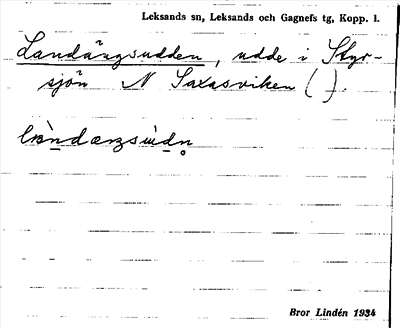 Leksands sn, Leksands och Gagnefs tg, Kopp. l.
Landängsudden, udde i Styr-
sjön N Saxasviken ( ).
Bror Lindén 1934